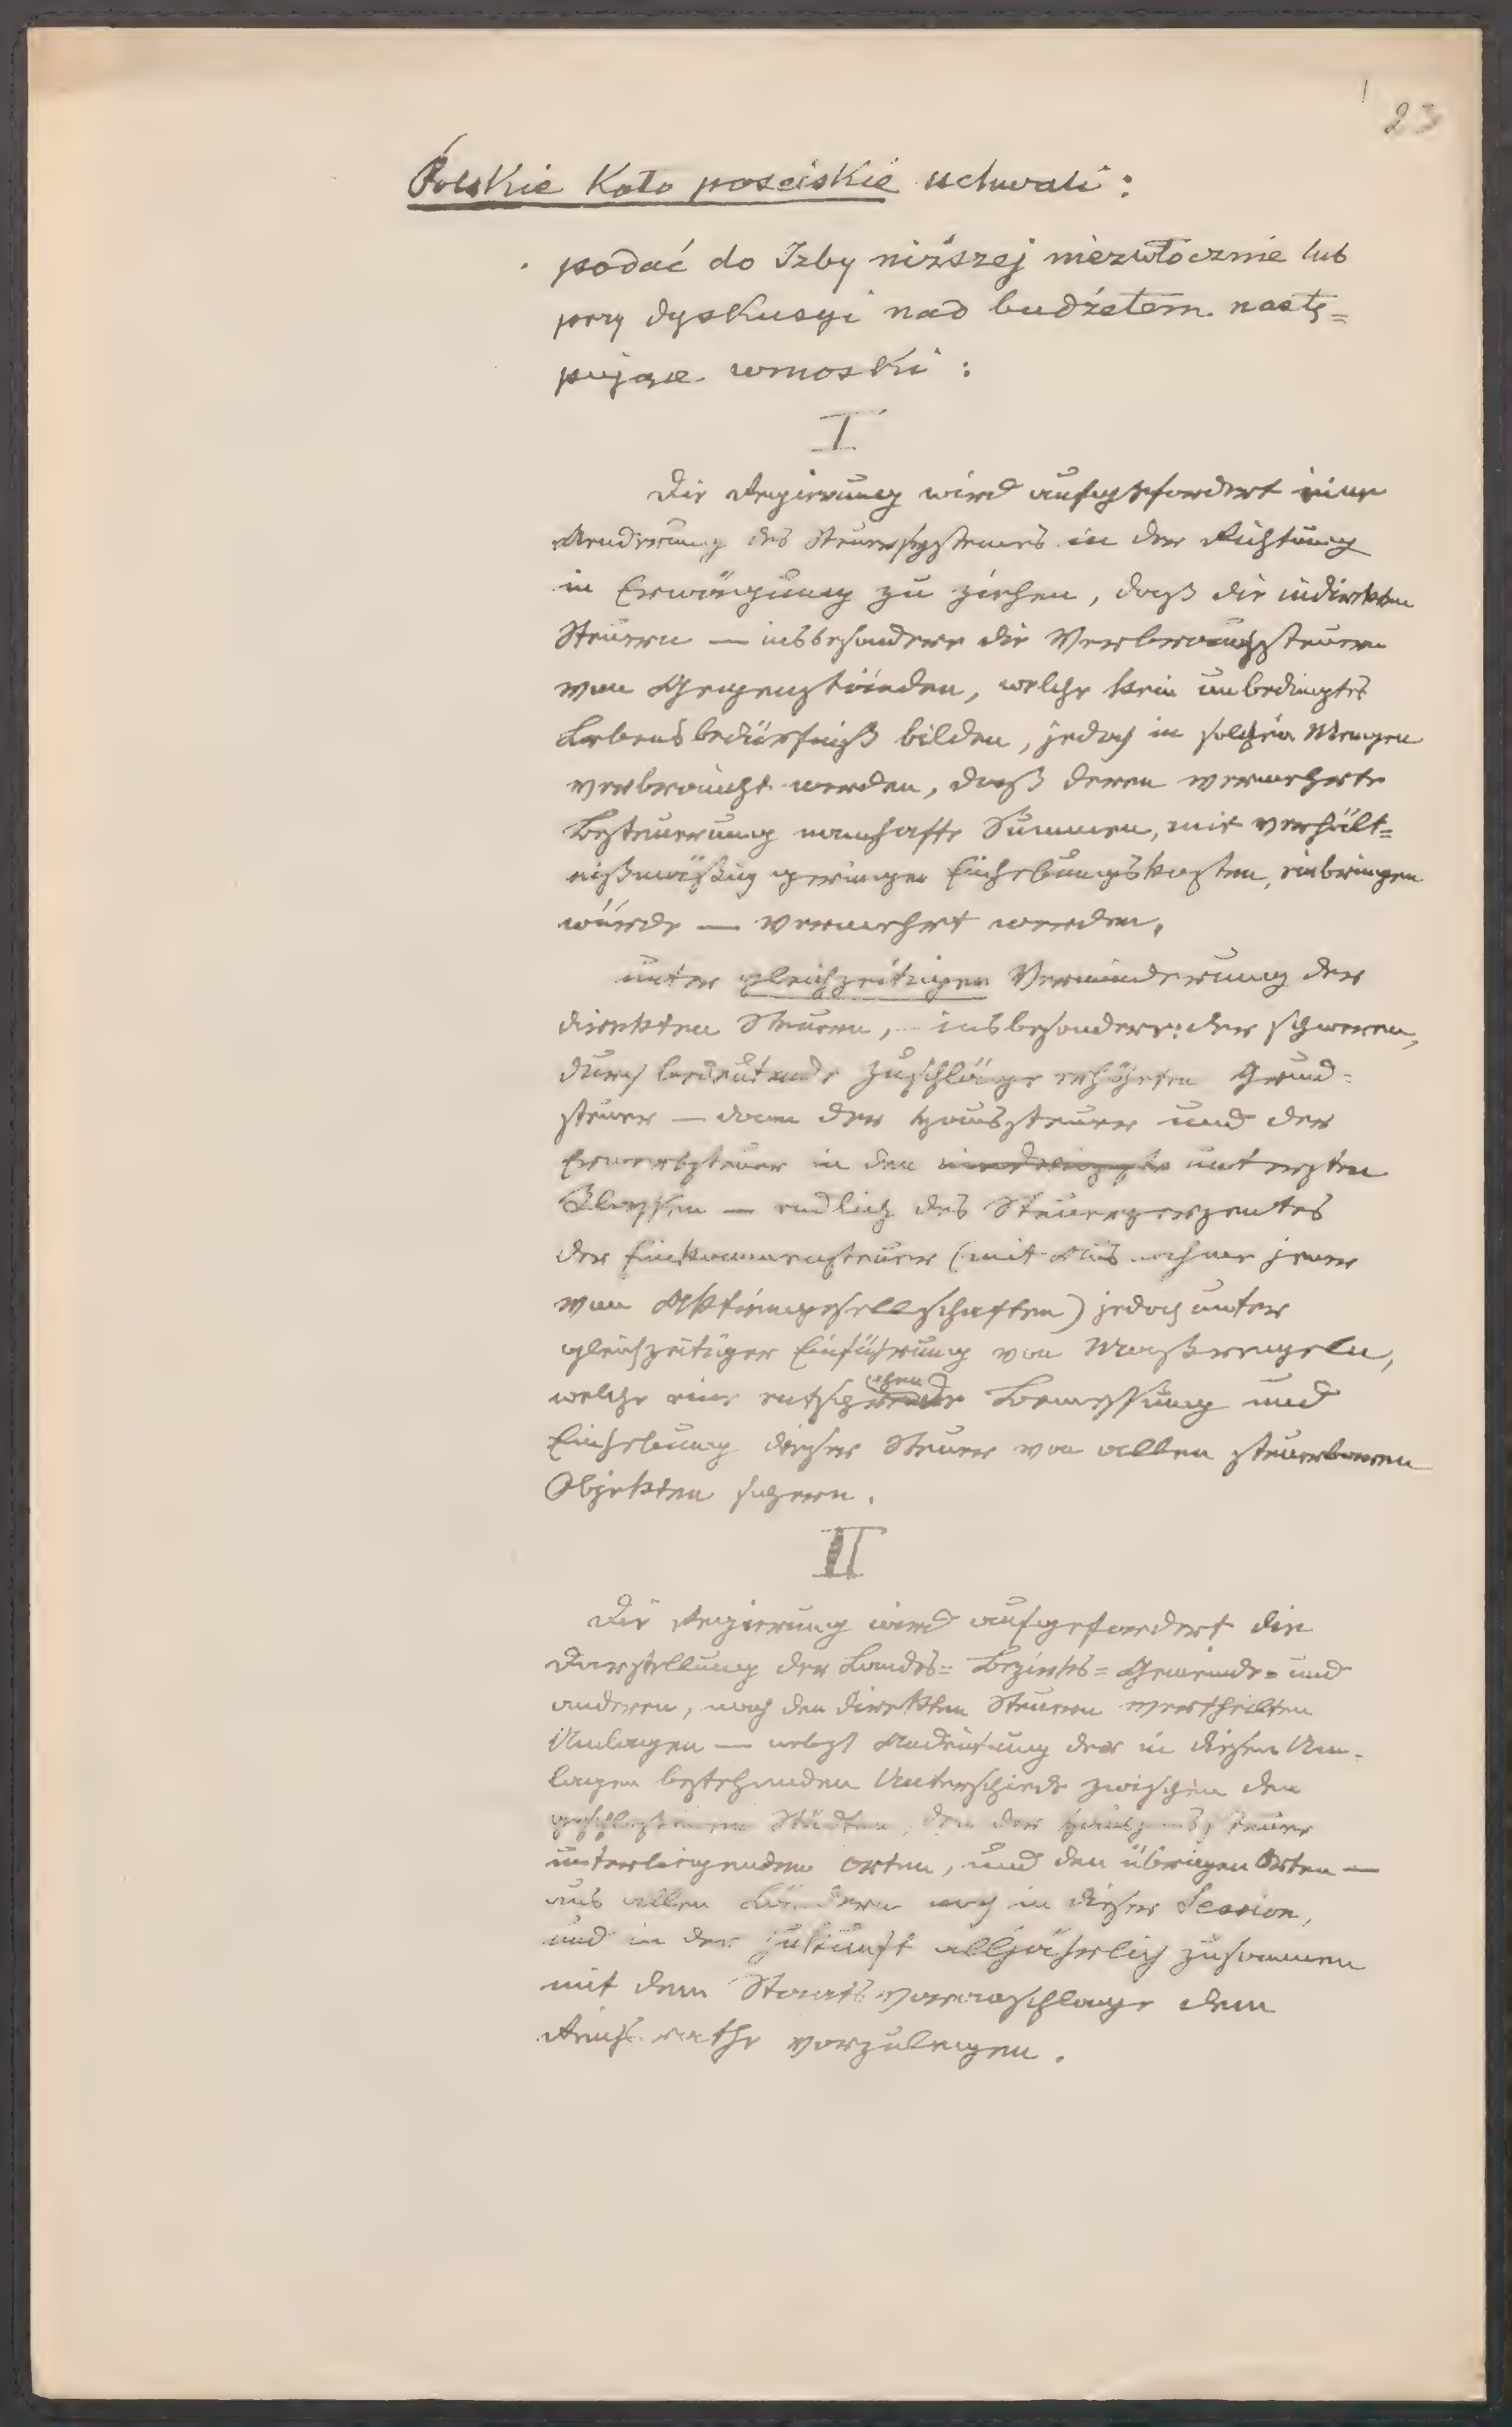 23
Polskie Koło poselskie uchwali:
podać do Izby niższej niezwłocznie lub
przy dyskusyi nad budżetem nastę=
pujące wnioski:
I
Die Regierung wird aufgefordert eine
Aenderung des Steuersystemes in der Richtung
in Erwägung zu ziehen, daß die indirekten
Steuern — insbesondere die Verbrauchssteuern
von Gegenständen, welche kein unbedingtes
Lebensbedürfniß bilden, jedoch in solchen Mengen
verbraucht werden, daß deren vermehrte
Besteuerung namhafte Summen, mit verhält=
nißmäßig geringen Einhebungskosten, einbringen
würde — vermehrt werden,
unter gleichzeitiger Verminderung der
direkten Steuern, — insbesondere: der schweren,
durch bedeutende Zuschläge erhöhten Grund=
steuer — dann der Haussteuer und der
Erwerbsteuer in den untersten
Klassen — endlich des Steuerperzentes
der Einkommensteuer (mit Ausnahme jener
von Aktiengesellschaften) jedoch unter
gleichzeitiger Einführung von Maßregeln,
welche eine Bemessung und
Einhebung dieser Steuer von allen steuerbaren
Objekten sichern.
II
Die Regierung wird aufgefordert die
Darstellung der Landes= Bezirks= Gemeinde= und
anderen, nach den direkten Steuern vertheilten
Umlagen — nebst Andeutung der in diesen Um=
lagen bestehenden Unterschiede zwischen den
geschlossenen Städten, den der Hauszinssteuer
unterliegenden Orten, und den übrigen Orten —
aus allen Ländern noch in dieser Session,
und in der Zukunft alljährlich zusammen
mit dem Staatsvoranschlage dem
Reichsrathe vorzulegen.